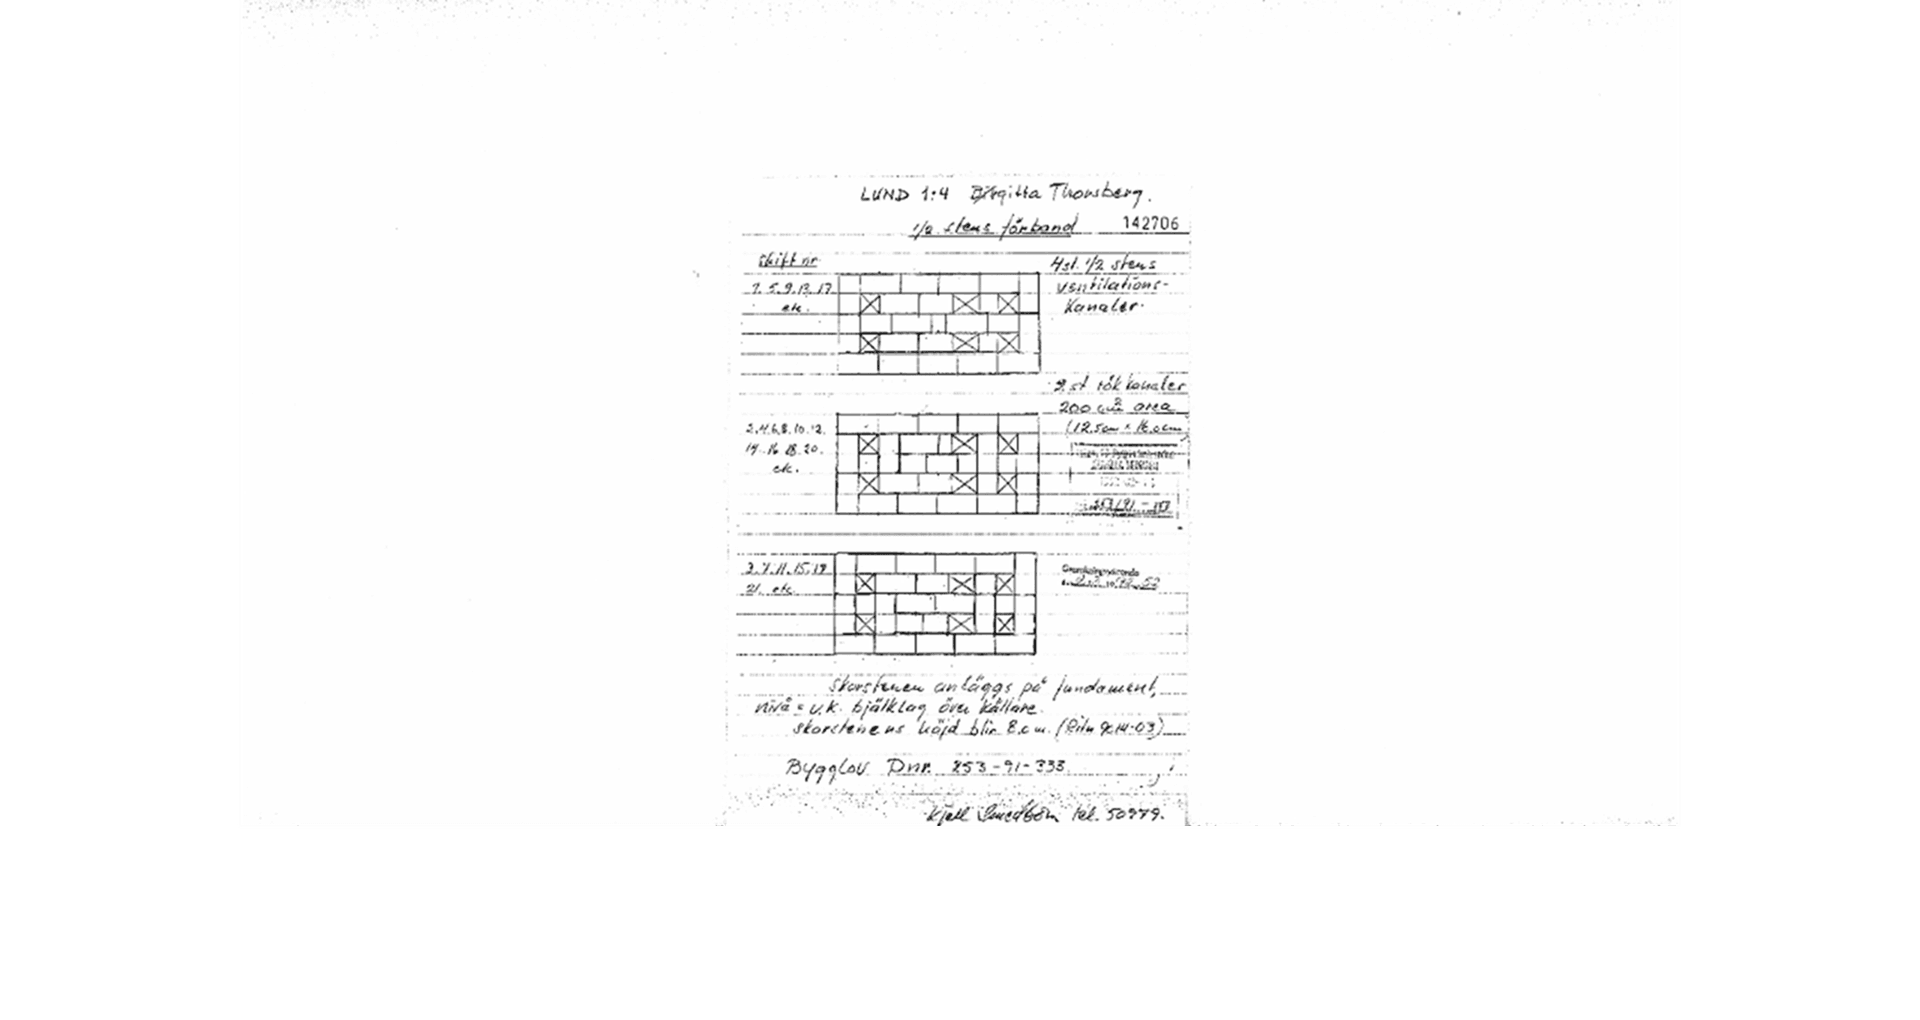 LUND 1:4 Birgitta Thorsberg.
1/2 stens förband 142706
Skift nr
4st. 1/2 stens
1. 5. 9. 13. 17 ventilations-
etc. Kanaler.
2. st rökkanaler
200 cm² area
2. 4. 6. 8. 10. 12. (12.5cm × 16.0cm)
14. 16 18. 20.
etc.
3. 7. 11. 15. 19 Granskningsärende
21. etc.
Skorstenen anläggs på fundament,
nivå = u.k. bjälklag över källare.
Skorstenens höjd blir 8.0 m.
Bygglov Dnr. 253-91-333
Kjell tel. 50979.